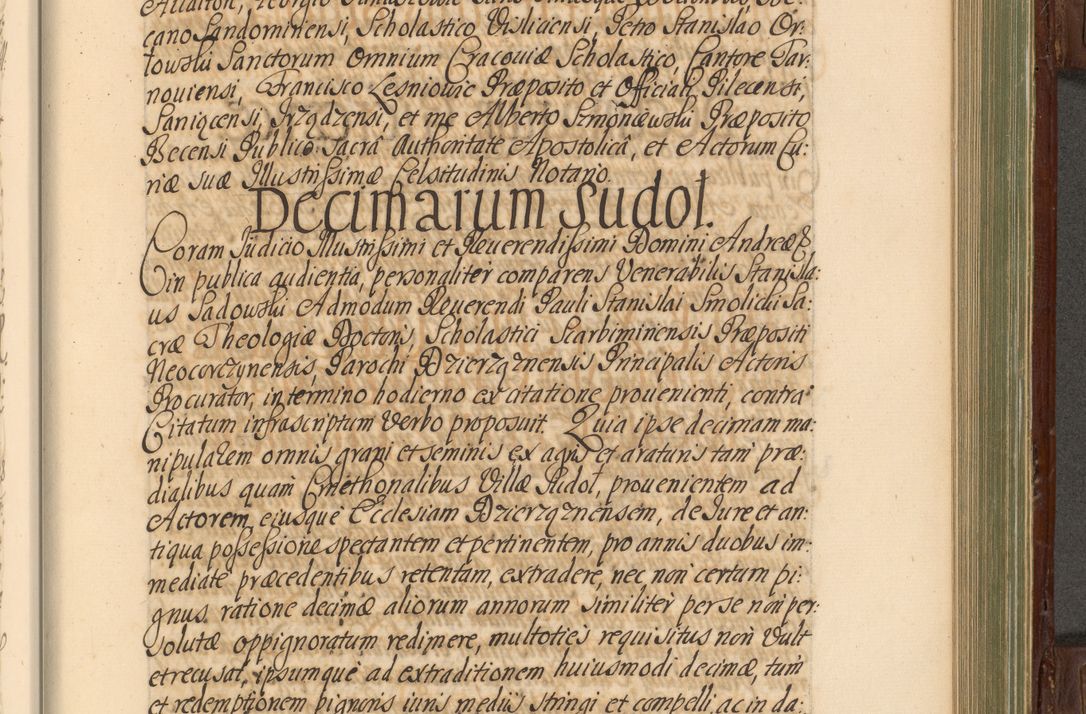 cano Sandominensi, Scholastico Visliciensi, Petro Stanislao Or:
łowski Sanctorum Omnium Cracoviæ Scholastico, Cantore Tar:
noviensi, Francisco Lesniovic Præposito et Officiali Pilecensi,
et me Alberto Præposito
Becensi Publico Sacrâ Authoritate Apostolicâ, et Actorum Cu:
riæ suæ Illustrissimæ Celsitudinis Notario.
Decimarum Sudoł.
Coram Judicio Illustrissimi et Reverendissimi Domini Andreæ &
in publica audientia, personaliter comparens Venerabilis Stanisla:
us Sadowski Admodum Reverendi Pauli Stanislai Smolicki Sa:
cræ Theologiæ Doctoris, Scholastici Scarbimiriensis Præpositi
Neocorczynensis, Parochi Dzierzążnensis Principalis Actoris
Procurator, in termino hodierno ex citatione provenienti, contra
Citatum infrascriptum Verbo proposuit. Quia ipse decimam ma:
nipulalem omnis grani et seminis ex agris et araturis tam præ:
dialibus quam Cmethonalibus Villæ Sudoł, provenientem ad
Actorem, eiusque Ecclesiam Dzierzążnensem, de Jure et an:
tiqua possessione spectantem et pertinentem, pro annis duobus im:
mediate præcedentibus retentam, extradere, nec non certum pi:
gnus ratione decimæ aliorum annorum similiter per se non per:
solutæ oppignoratum redimere, multoties requisitus non Vult
et recusat, ipsumque ad extraditionem huiusmodi decimæ, tum
et redemptionem pignoris iuris mediis stringi et compelli, ac in da: